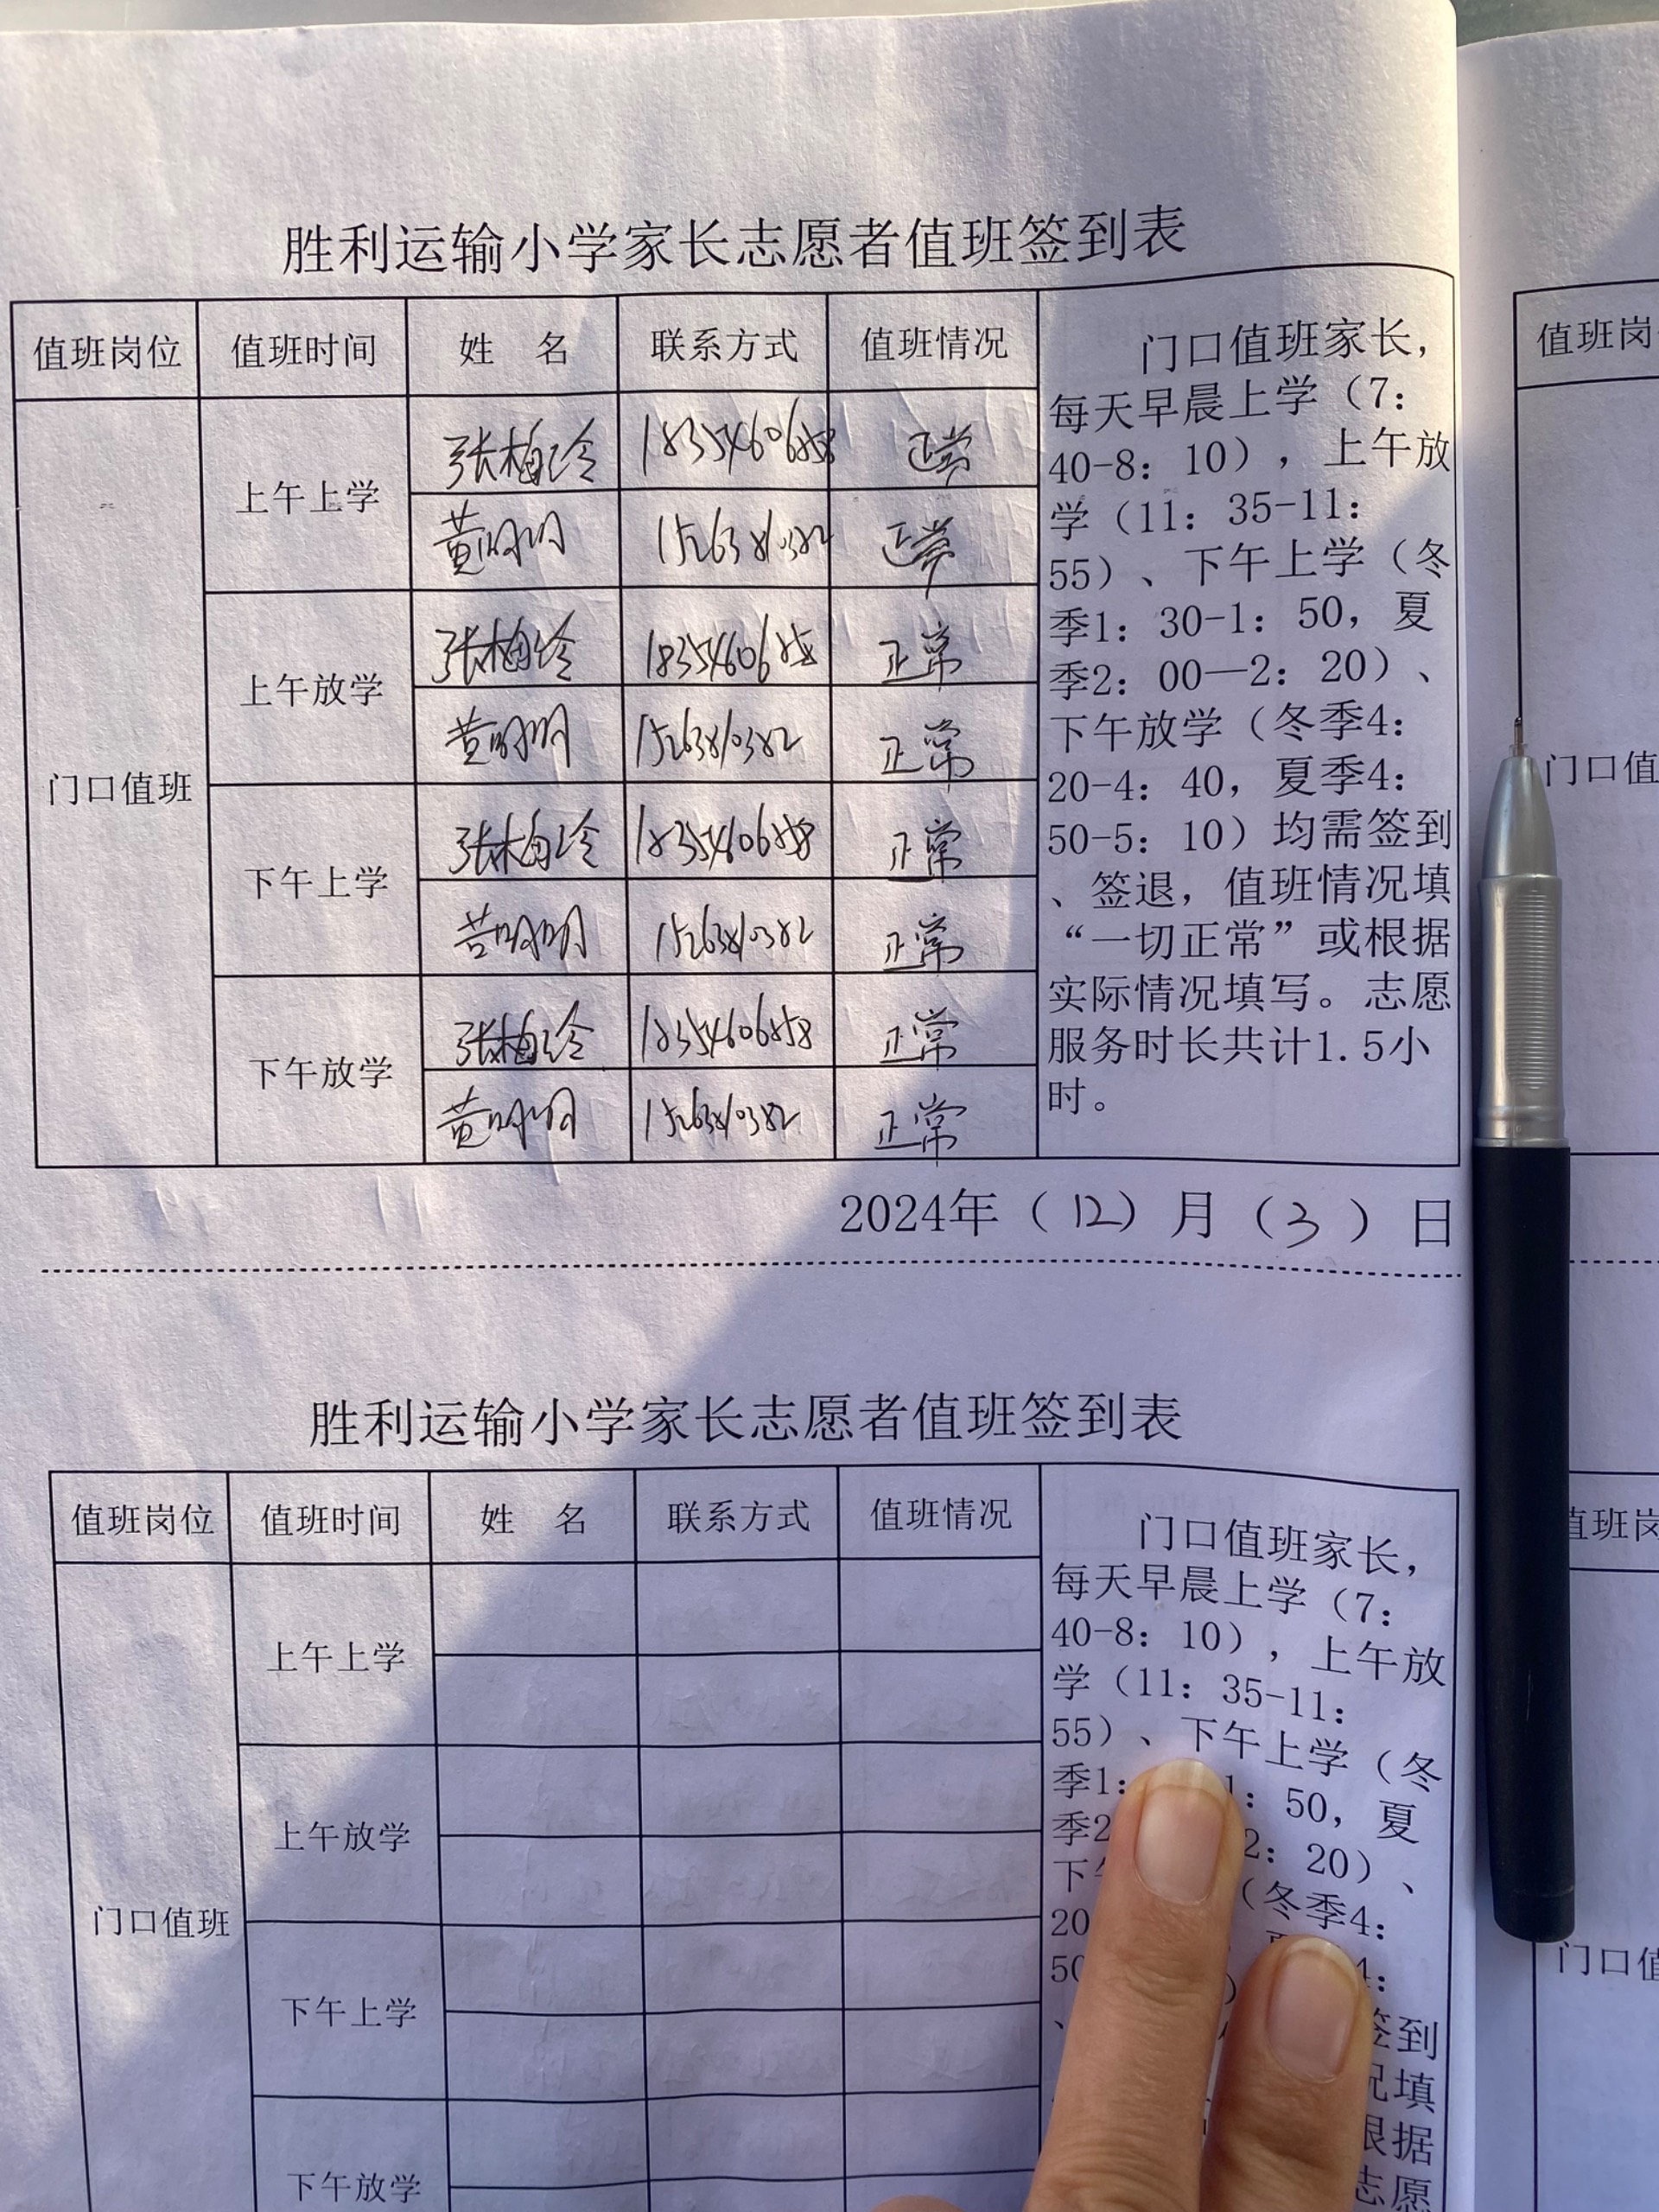 胜利运输小学家长志愿者值班签到表
值班岗位 值班时间 姓 名 联系方式 值班情况
门口值班
上午上学
张梅玲 正常
黄明明 正常
上午放学
张梅玲 正常
黄明明 15263810382 正常
下午上学
张梅玲 18354606858 正常
黄明明 15263810382 正常
下午放学
张梅玲 18354606858 正常
黄明明 15263810382 正常
门口值班家长，
每天早晨上学（7：
40-8：10），上午放
学（11：35-11：
55）、下午上学（冬
季1：30-1：50，夏
季2：00—2：20）、
下午放学（冬季4：
20-4：40，夏季4：
50-5：10）均需签到
、签退，值班情况填
“一切正常”或根据
实际情况填写。志愿
服务时长共计1.5小
时。
2024年（12）月（3）日
胜利运输小学家长志愿者值班签到表
值班岗位 值班时间 姓 名 联系方式 值班情况
门口值班
上午上学
上午放学
下午上学
下午放学
门口值班家长，
每天早晨上学（7：
40-8：10），上午放
学（11：35-11：
55）、下午上学（冬
季1： 1：50，夏
季2 2：20）、
下 （冬季4：
20
50 4：
签到
况填
根据
志愿
值班岗
门口值
值班岗
门口值